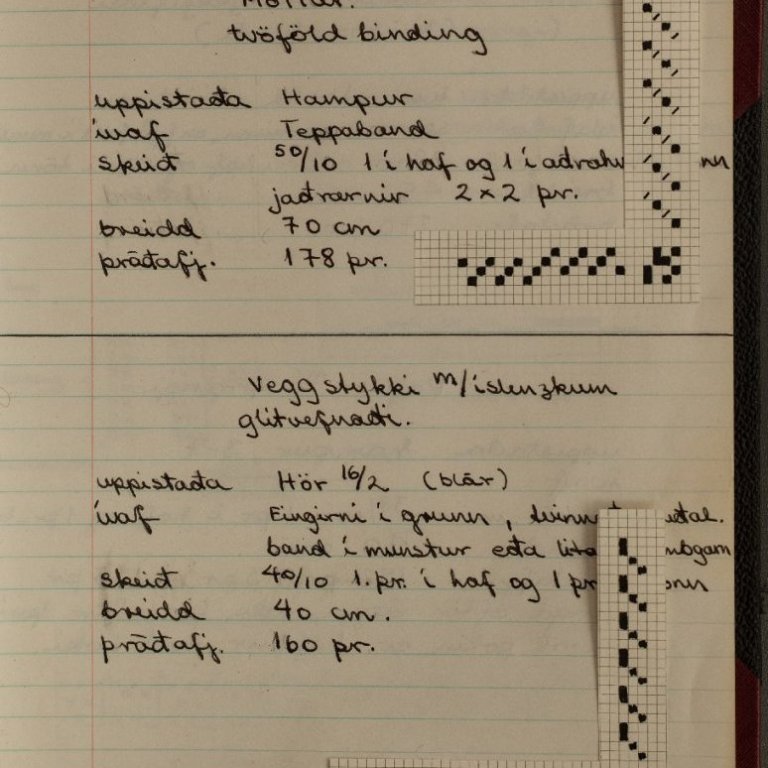 Mottur.
tvöföld binding
uppistaða Hampur
ívaf Teppaband
skeið 50/10 1 í haf og 1 í
jaðrarnir 2 x 2 pr.
breidd 70 cm
þráðafj. 178 pr.
Veggstykki m/íslenzkum
glitvefnaði.
uppistaða Hör 16/2 (blár)
ívaf Eingirni í grunn,
band í munstur eða
skeið 40/10 1. pr. í haf og 1 pr
breidd 40 cm.
þráðafj. 160 pr.